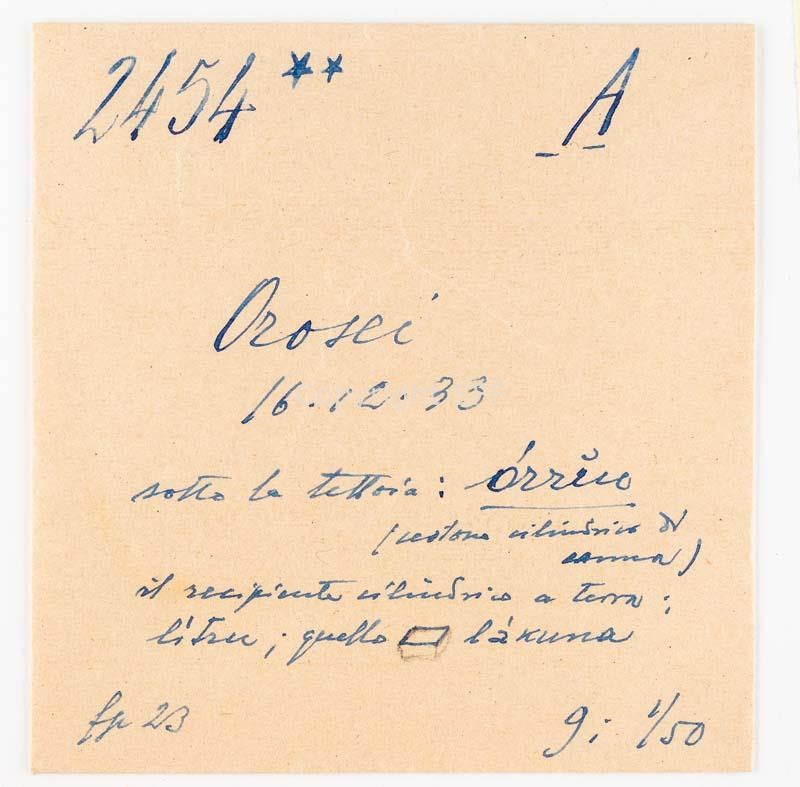 2454 ** A
Orosei
16.12.33
sotto la tettoia: órrĭu
(cestone cilindrico di
canna)
il recipiente cilindrico a terra:
lítru; quello lákuna
fp 23 9; 1/50